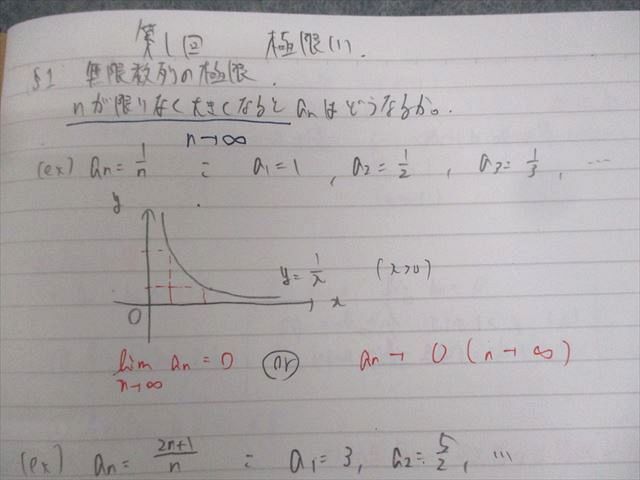 第1回 極限(1).
§1 無限数列の極限.
nが限りなく大きくなると anはどうなるか。
n→∞
(ex) an = 1/n : a1=1, a2=1/2, a3=1/3, …
y
y=1/x (x>0)
O x
lim n→∞ an = 0 or an → 0 (n→∞)
(ex) an = 2n+1/n : a1=3, a2=5/2, …